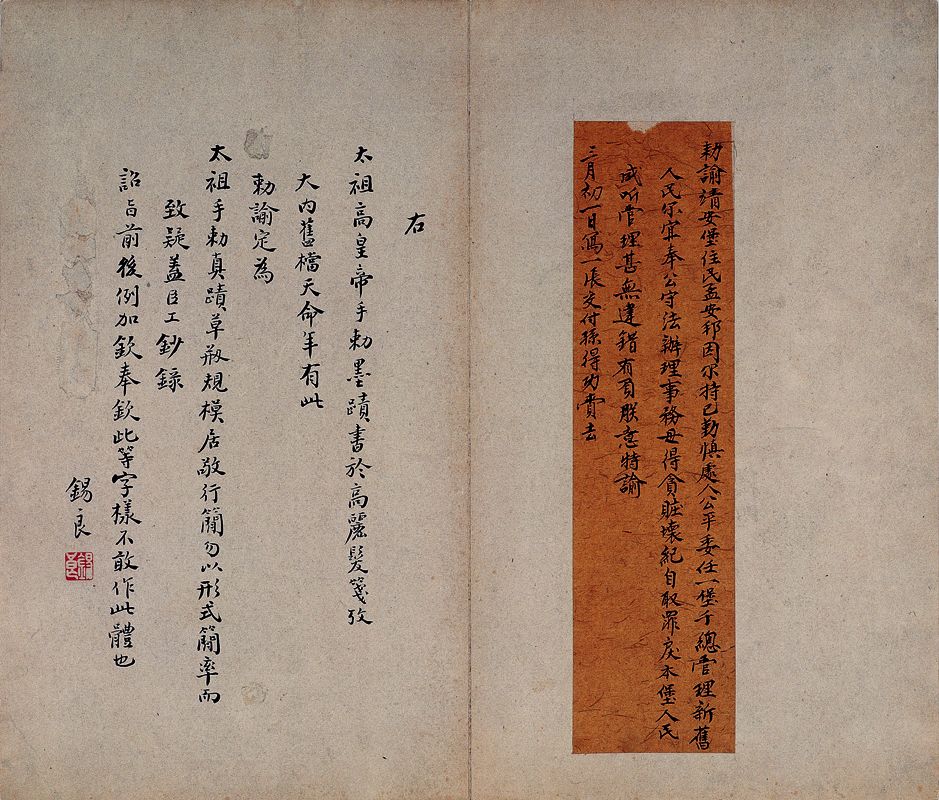 勅諭靖安堡住民孟安邦因尔持己勤慎處人公平委任一堡千總管理新舊
人民尔宜奉公守法辦理事務毋得貪賍壞紀自取罪戾本堡人民
咸听管理甚無違錯有負朕意特諭
三月初一日寫一張交付孫得功賫去
右
太祖高皇帝手勅墨蹟書於高麗髮箋攷
大内舊檔天命年有此
勅諭定為
太祖手勅真蹟草剏規模居敬行簡勿以形式簡率而
致疑蓋臣工鈔録
詔旨前後例加欽奉欽此等字樣不敢作此體也
錫良